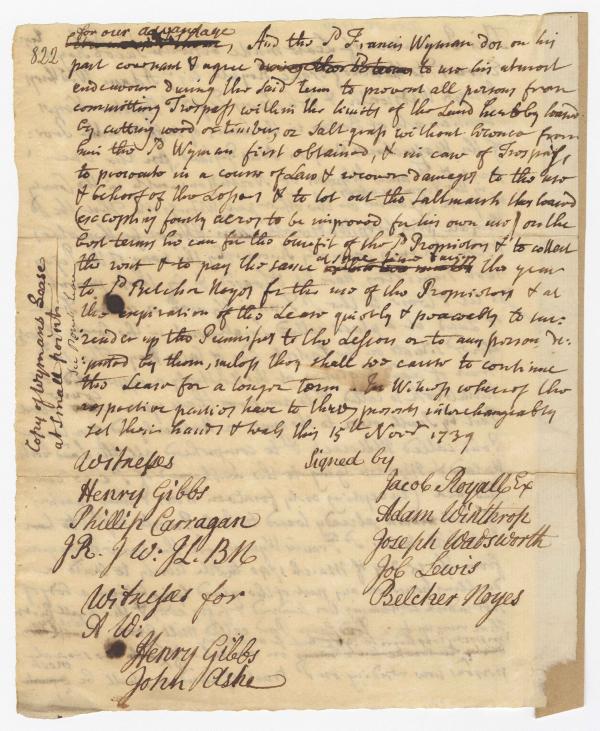 822
for our advantage
And the Sd Francis Wyman doe on his
part covenant & agree to use his utmost
endeavour during the said term to prevent all persons from
committing Trespass within the limits of the Land hereby leased
by cutting wood or timber, or Salt grass without licence from
him the Sd Wyman first obtained, & in case of Trespass
to prosecute in a course of Law & recover damages to the use
& behoof of the Lessors & to let out the saltmarsh this leased
(excepting fourty acres to be improved for his own use) on the
best terms he can for the benefit of the Sd Proprietors & to collect
the rent & to pay the same at some time during the year
to Sd Belcher Noyes for the use of the Proprietors & at
the expiration of the Lease quietly & peacably to sur-
render up the Premises to the Lessors or to any person de-
puted by them, unless they shall see cause to continue
the Lease for a longer term. In Witness whereof the
respective parties have to these presents interchangeably
set their hands & seals this 15th Novr 1739
Witnesses Signed by
Henry Gibbs Jacob Royall Ex
Phillip Carragan Adam Winthrop
J R. J W. J L. B N Joseph Wadsworth
Job Lewis
Witnesses for Belcher Noyes
A W.
Henry Gibbs
John Ashe
Copy of Wymans Lease
at Small point